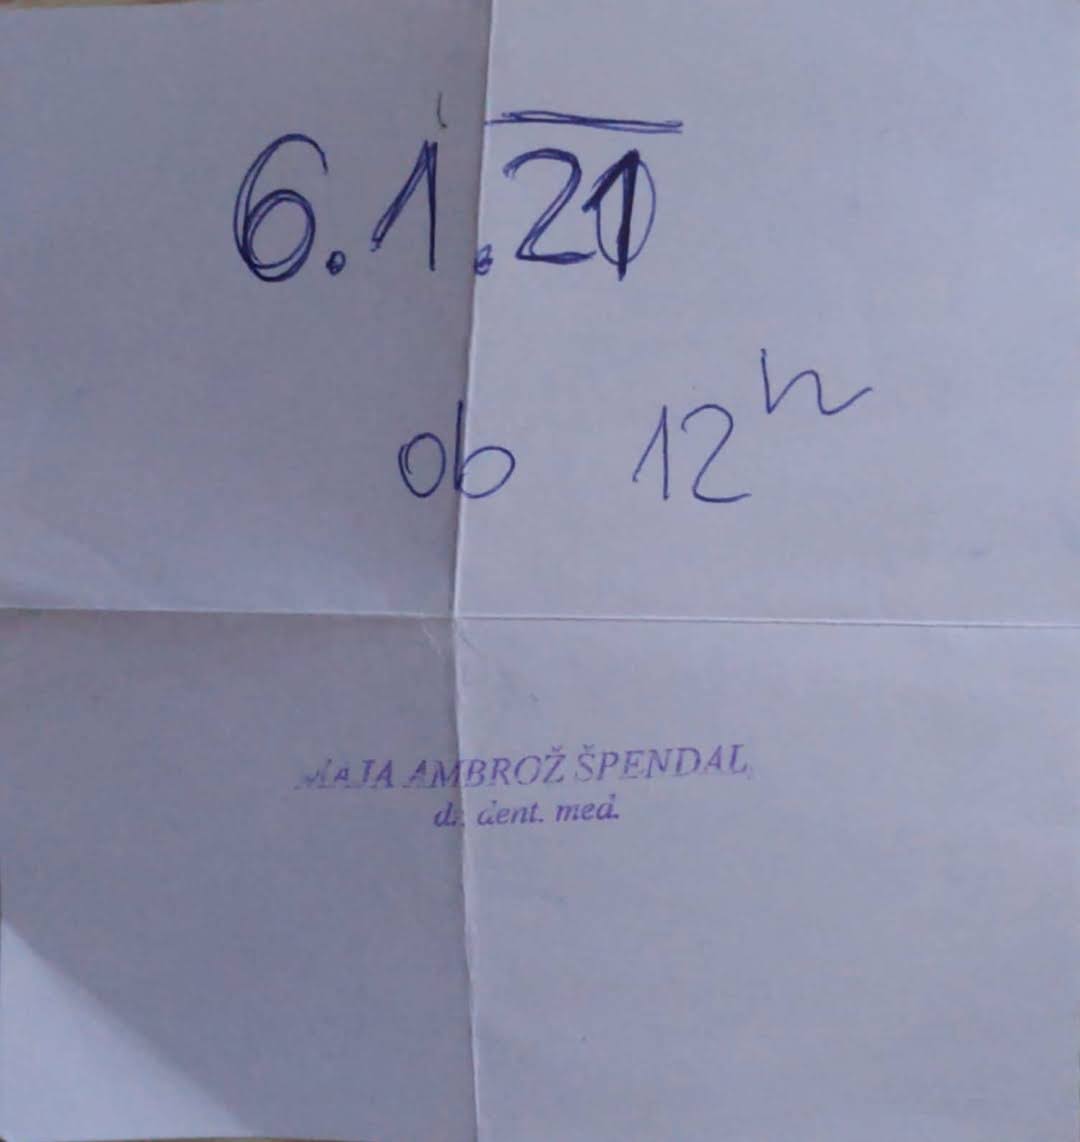 6.1.21
ob 12h
MAJA AMBROŽ ŠPENDAL
dr. dent. med.